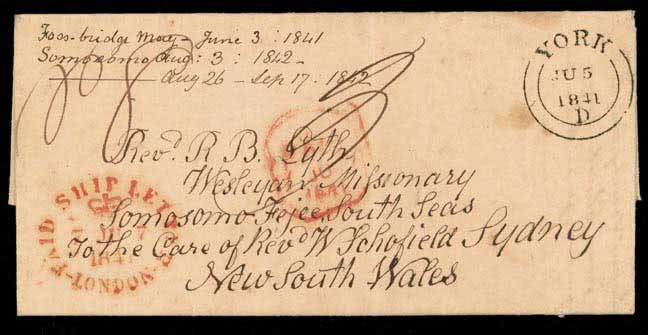 Foss-bridge May - June 3: 1841
Somosomo Aug: 3: 1842 -
Aug 26 - Sep 17. 1842
YORK
JU 5
1841
D
Revd. R B. Lyth
Wesleyan Missionary
Somosomo Fejee South Seas
To the Care of Revd W Schofield Sydney
New South Wales
PAID SHIP LET
LONDON